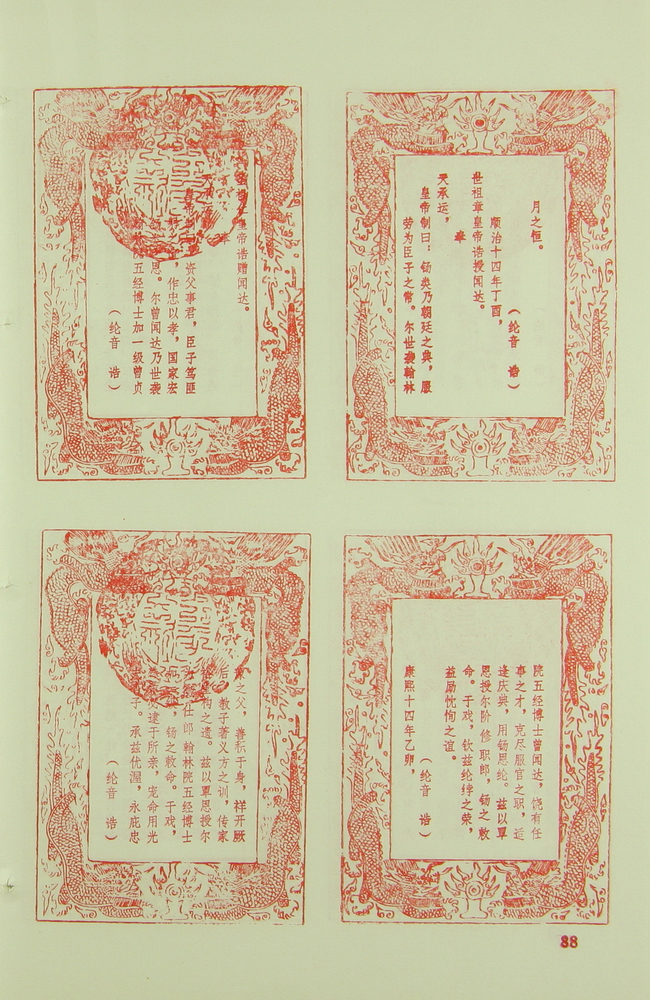 月之恒。
（纶音　诰）
顺治十四年丁酉，
世祖章皇帝诰授闻达。
奉
天承运，
皇帝制曰：锡类乃朝廷之典，服
劳为臣子之常。尔世袭翰林
院五经博士曾闻达，饶有任
事之才，克尽服官之职，适
逢庆典，用锡恩纶。兹以覃
恩授尔阶修职郎，锡之敕
命。于戏，钦兹纶綍之荣，
益励忱恂之谊。
（纶音　诰）
康熙十四年乙卯，
皇帝诰赠闻达。
资父事君，臣子笃匪
作忠以孝，国家宏
恩。尔曾闻达乃世袭
院五经博士加一级曾贞
（纶音　诰）
之父，善积于身，祥开厥
后，教子著义方之训，传家
构之遗。兹以覃恩授尔
仕郎翰林院五经博士
锡之敕命。于戏，
逮于所亲，宠命用光
子。承兹优渥，永庇忠
（纶音　诰）
88